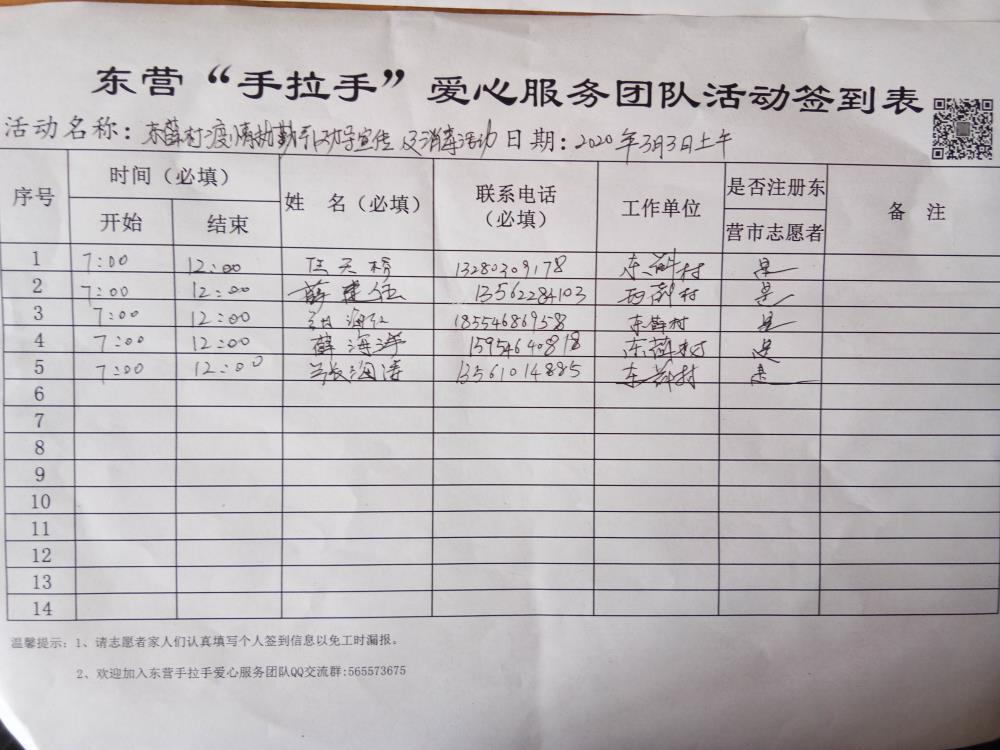 东营“手拉手”爱心服务团队活动签到表
活动名称：东薛村疫情执勤引劝导宣传及消毒活动 日期：2020年3月3日上午
序号 时间（必填） 开始 结束 姓 名（必填） 联系电话（必填） 工作单位 是否注册东营市志愿者 备 注
1 7:00 12:00 任天榜 13280309178 东薛村 是
2 7:00 12:00 薛建伍 13562284103 西 村 是
3 7:00 12:00 海红 18554686958 东薛村 是
4 7:00 12:00 薛海洋 15954640818 东薛村 是
5 7:00 12:00 张海涛 13561014885 东薛村 是
6
7
8
9
10
11
12
13
14
温馨提示：1、请志愿者家人们认真填写个人签到信息以免工时漏报。
2、欢迎加入东营手拉手爱心服务团队QQ交流群:565573675